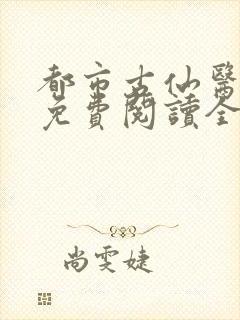 都市古仙醫
免費閱讀全
尚雯婕